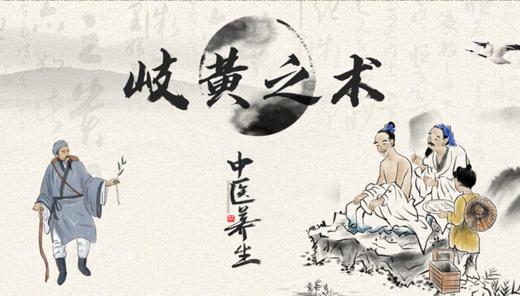 岐黄之术
中医养生